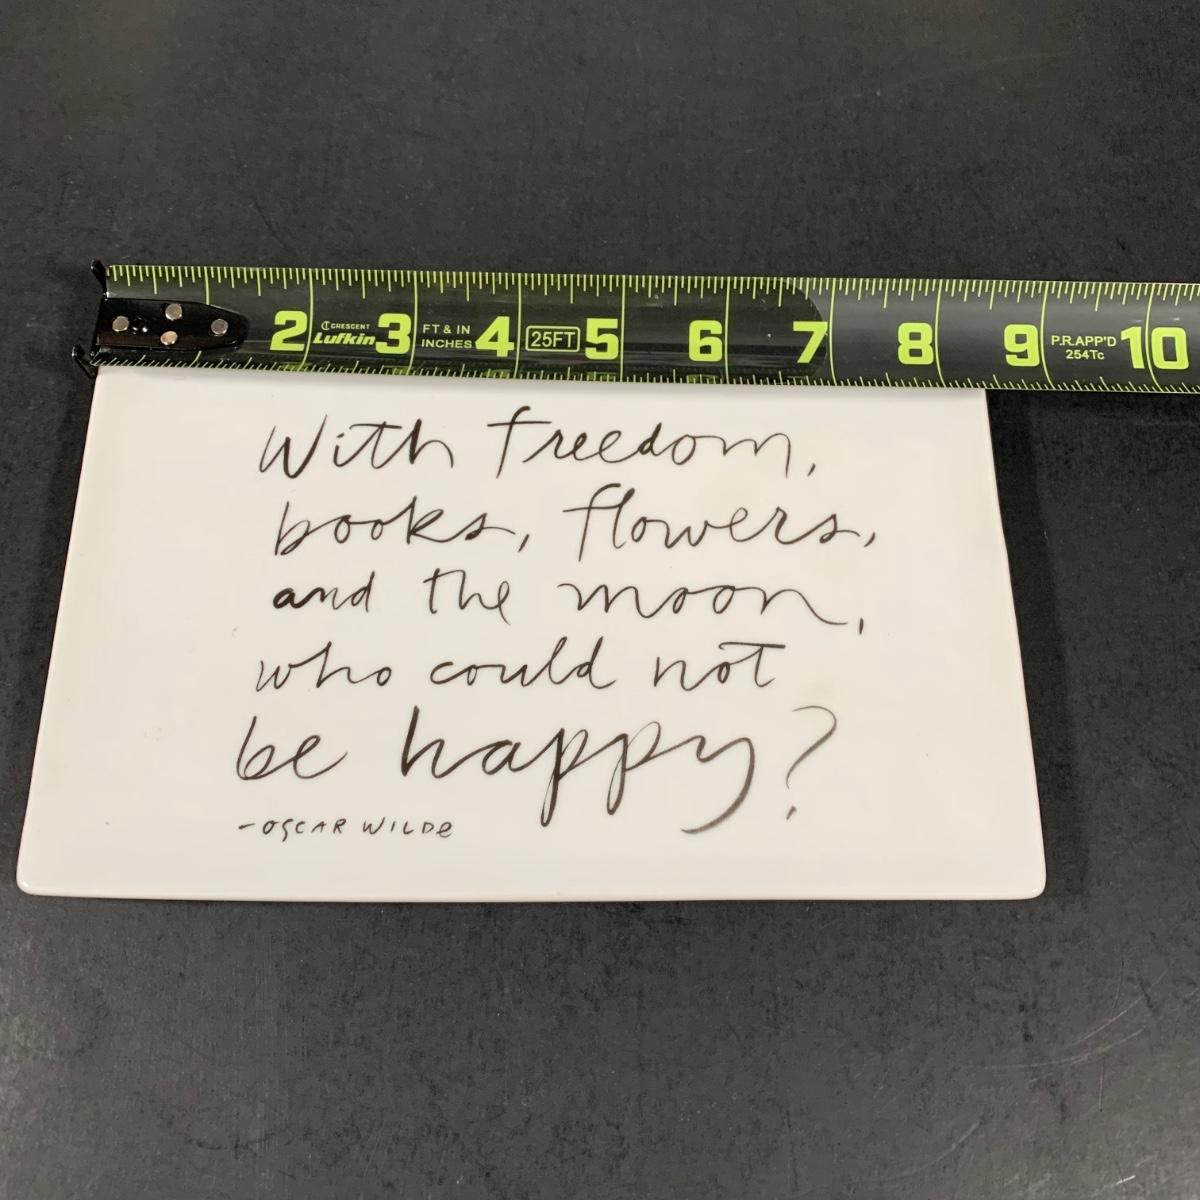 2 CRESCENT Lufkin 3 FT & IN INCHES 4 25FT 5 6 7 8 9 P.R.APP'D 254Tc 10
With freedom,
books, flowers,
and the moon,
who could not
be happy?
-OSCAR WILDe